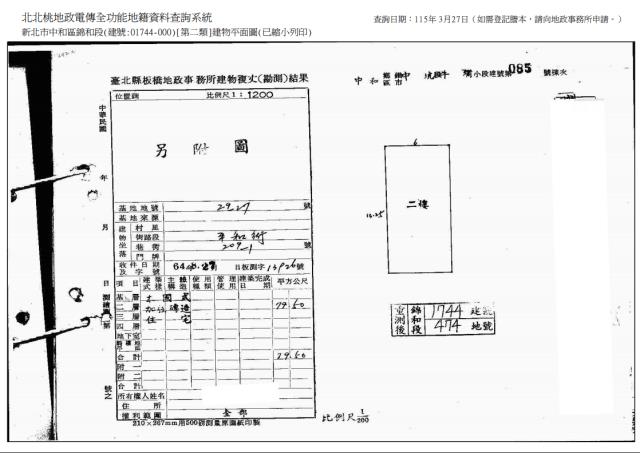 北北桃地政電傳全功能地籍資料查詢系統
查詢日期：115年3月27日（如需登記謄本，請向地政事務所申請。）
新北市中和區錦和段(建號:01744-000)[第二類]建物平面圖(已縮小列印)
臺北縣板橋地政事務所建物複丈(勘測)結果
位置圖 比例尺1：1200
中華民國 年 月 日
另附圖
基地地號 29.27 號
基地來源
建物坐落
村里
街路段 平和街
巷衖 209-1 號
門牌
收件日期及字號 64 日板測字 號
項目 建築式樣 主體構造 使用種類 管理使用 建築完成日期 平方公尺
基層 本國式
二層 加強磚造 79.50
三層 住宅
四層
地下室
騎樓地平
合計 79.50
附一
附二
合計
所有權人姓名
住所
權利範圍 全部
210×267mm用500磅測量原圖紙印製
測繪 第 號之
中和 鄉鎮市區 小段建號第 085 號棟次
6
13.25
二樓
重測後 錦和段 1744 建號
474 地號
比例尺 1/200